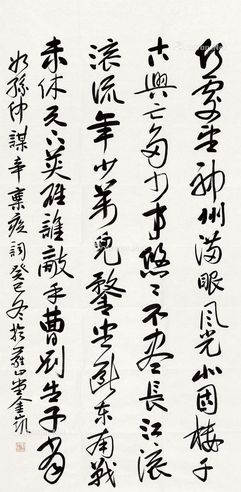 何處望神州滿眼風光北固樓千
古興亡多少事悠々不盡長江滾
滾流年少萬兜鍪坐斷東南戰
未休天下英雄誰敵手曹劉生子當
如孫仲謀辛棄疾詞癸巳冬於